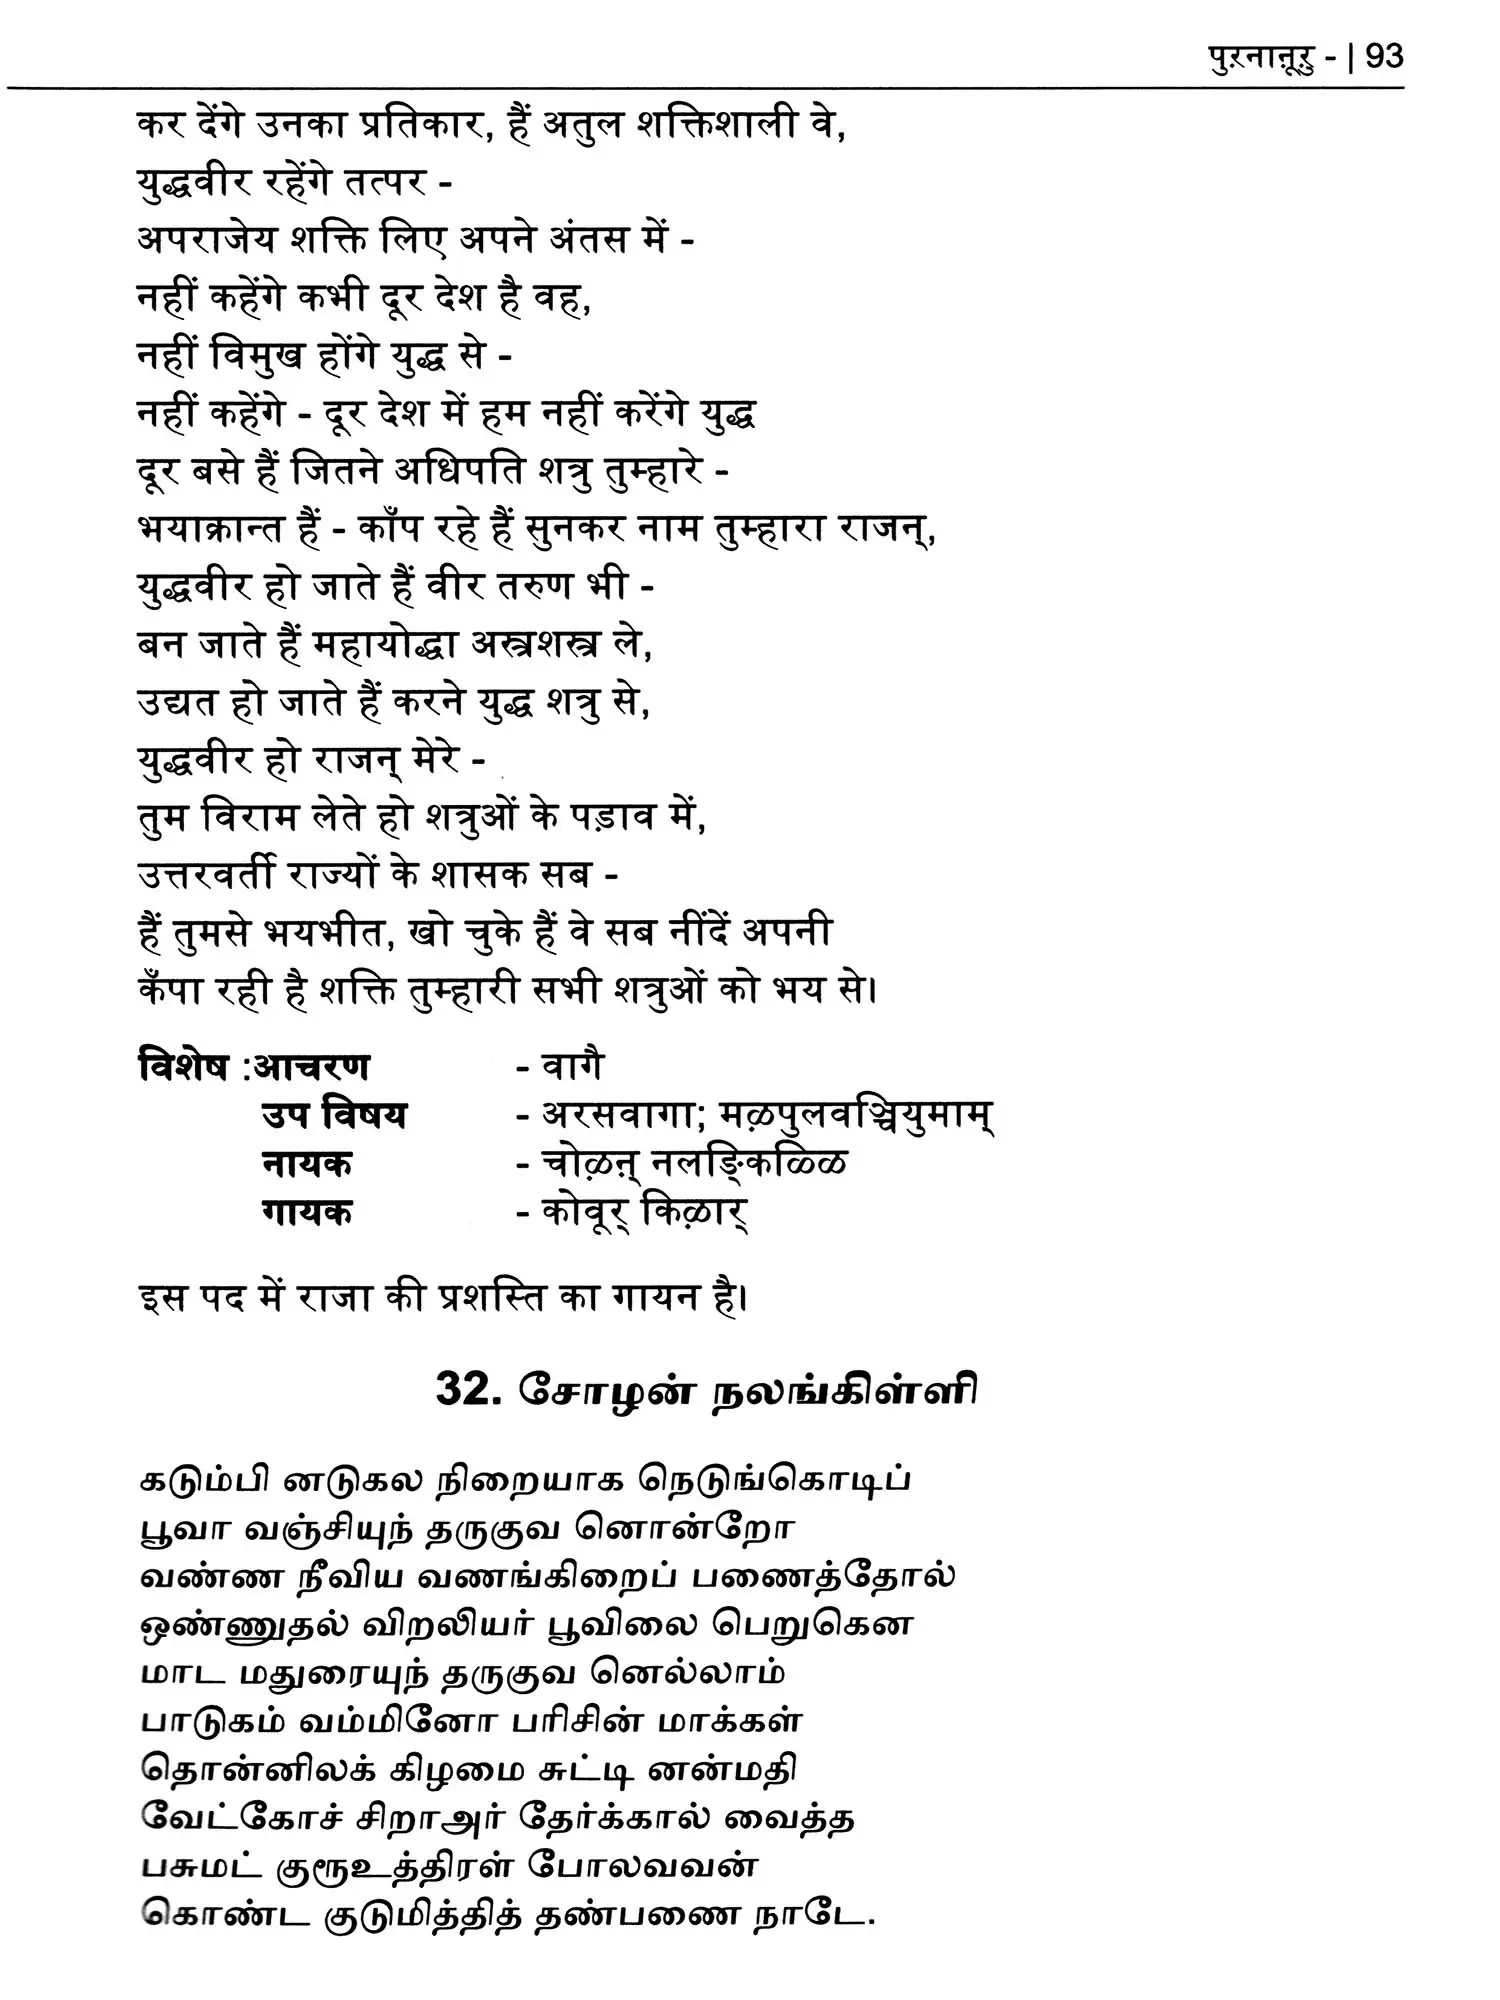 पुऱनाऩूऱु - | 93
कर देंगे उनका प्रतिकार, हैं अतुल शक्तिशाली वे,
युद्धवीर रहेंगे तत्पर -
अपराजेय शक्ति लिए अपने अंतस में -
नहीं कहेंगे कभी दूर देश है वह,
नहीं विमुख होंगे युद्ध से -
नहीं कहेंगे - दूर देश में हम नहीं करेंगे युद्ध
दूर बसे हैं जितने अधिपति शत्रु तुम्हारे -
भयाक्रान्त हैं - काँप रहे हैं सुनकर नाम तुम्हारा राजन्,
युद्धवीर हो जाते हैं वीर तरुण भी -
बन जाते हैं महायोद्धा अस्त्रशस्त्र ले,
उद्यत हो जाते हैं करने युद्ध शत्रु से,
युद्धवीर हो राजन् मेरे -
तुम विराम लेते हो शत्रुओं के पड़ाव में,
उत्तरवर्ती राज्यों के शासक सब -
हैं तुमसे भयभीत, खो चुके हैं वे सब नींदें अपनी
कँपा रही है शक्ति तुम्हारी सभी शत्रुओं को भय से।
विशेष :आचरण - वागै
उप विषय - अरसवागा; मऴपुलवञ्चियुमाम्
नायक - चोऴऩ् नलङ्किळ्ळि
गायक - कोवूर् किऴार्
इस पद में राजा की प्रशस्ति का गायन है।
32. சோழன் நலங்கிள்ளி
கடும்பி னடுகல நிறையாக நெடுங்கொடிப்
பூவா வஞ்சியுந் தருகுவ னொன்றோ
வண்ண நீவிய வணங்கிறைப் பணைத்தோல்
ஒண்ணுதல் விறலியர் பூவிலை பெறுகென
மாட மதுரையுந் தருகுவ னெல்லாம்
பாடுகம் வம்மினோ பரிசின் மாக்கள்
தொன்னிலக் கிழமை சுட்டி னன்மதி
வேட்கோச் சிறாஅர் தேர்க்கால் வைத்த
பசுமட் குரூஉத்திரள் போலவவன்
கொண்ட குடுமித்தித் தண்பணை நாடே.